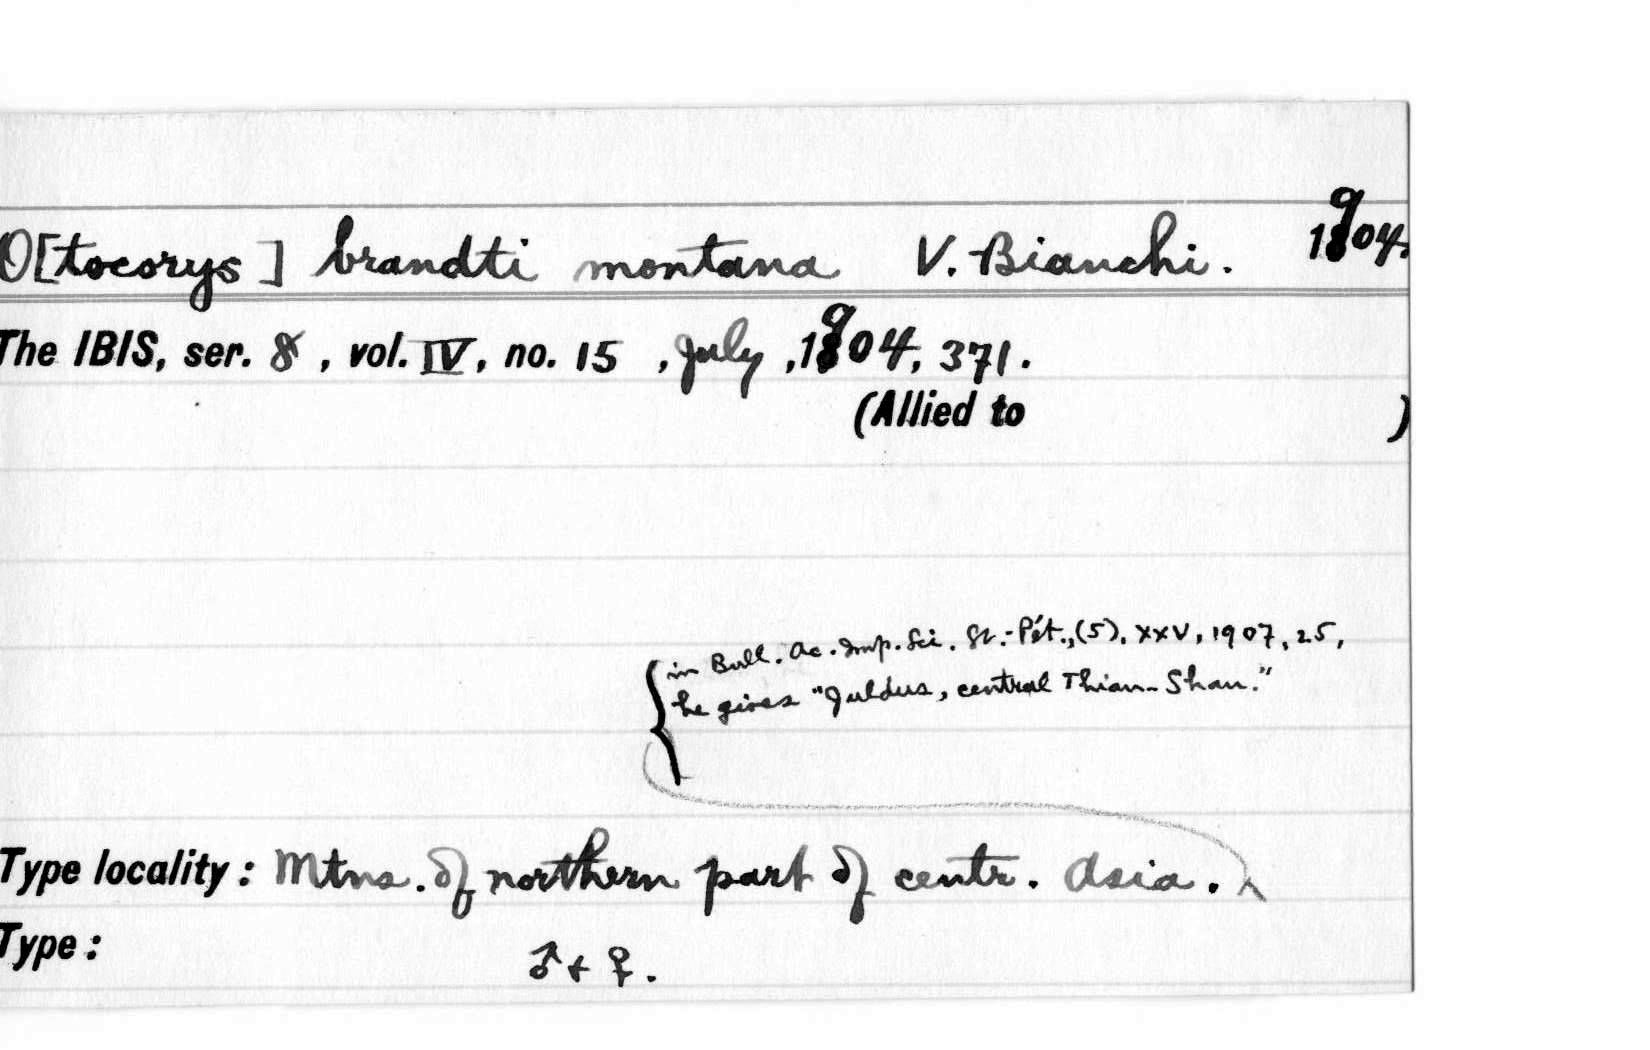 O[tocorys] brandti montana V. Bianchi. 1904.
The IBIS, ser. 8, vol. IV, no. 15, July, 1904, 371.
(Allied to )
in Bull. Ac. Imp. Sci. St.-Pét., (5), XXV, 1907, 25,
he gives "Juldus, central Thian-Shan."
Type locality: Mtns. of northern part of centr. Asia.
Type: ♂ + ♀.